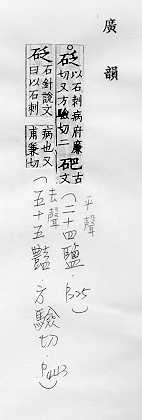 廣韻
砭以石刺病府廉切又方驗切二 古文
平聲(二十四鹽.P225)
砭石針說文曰以石刺病也又甫兼切
去聲(五十五豔.方驗切.P443)